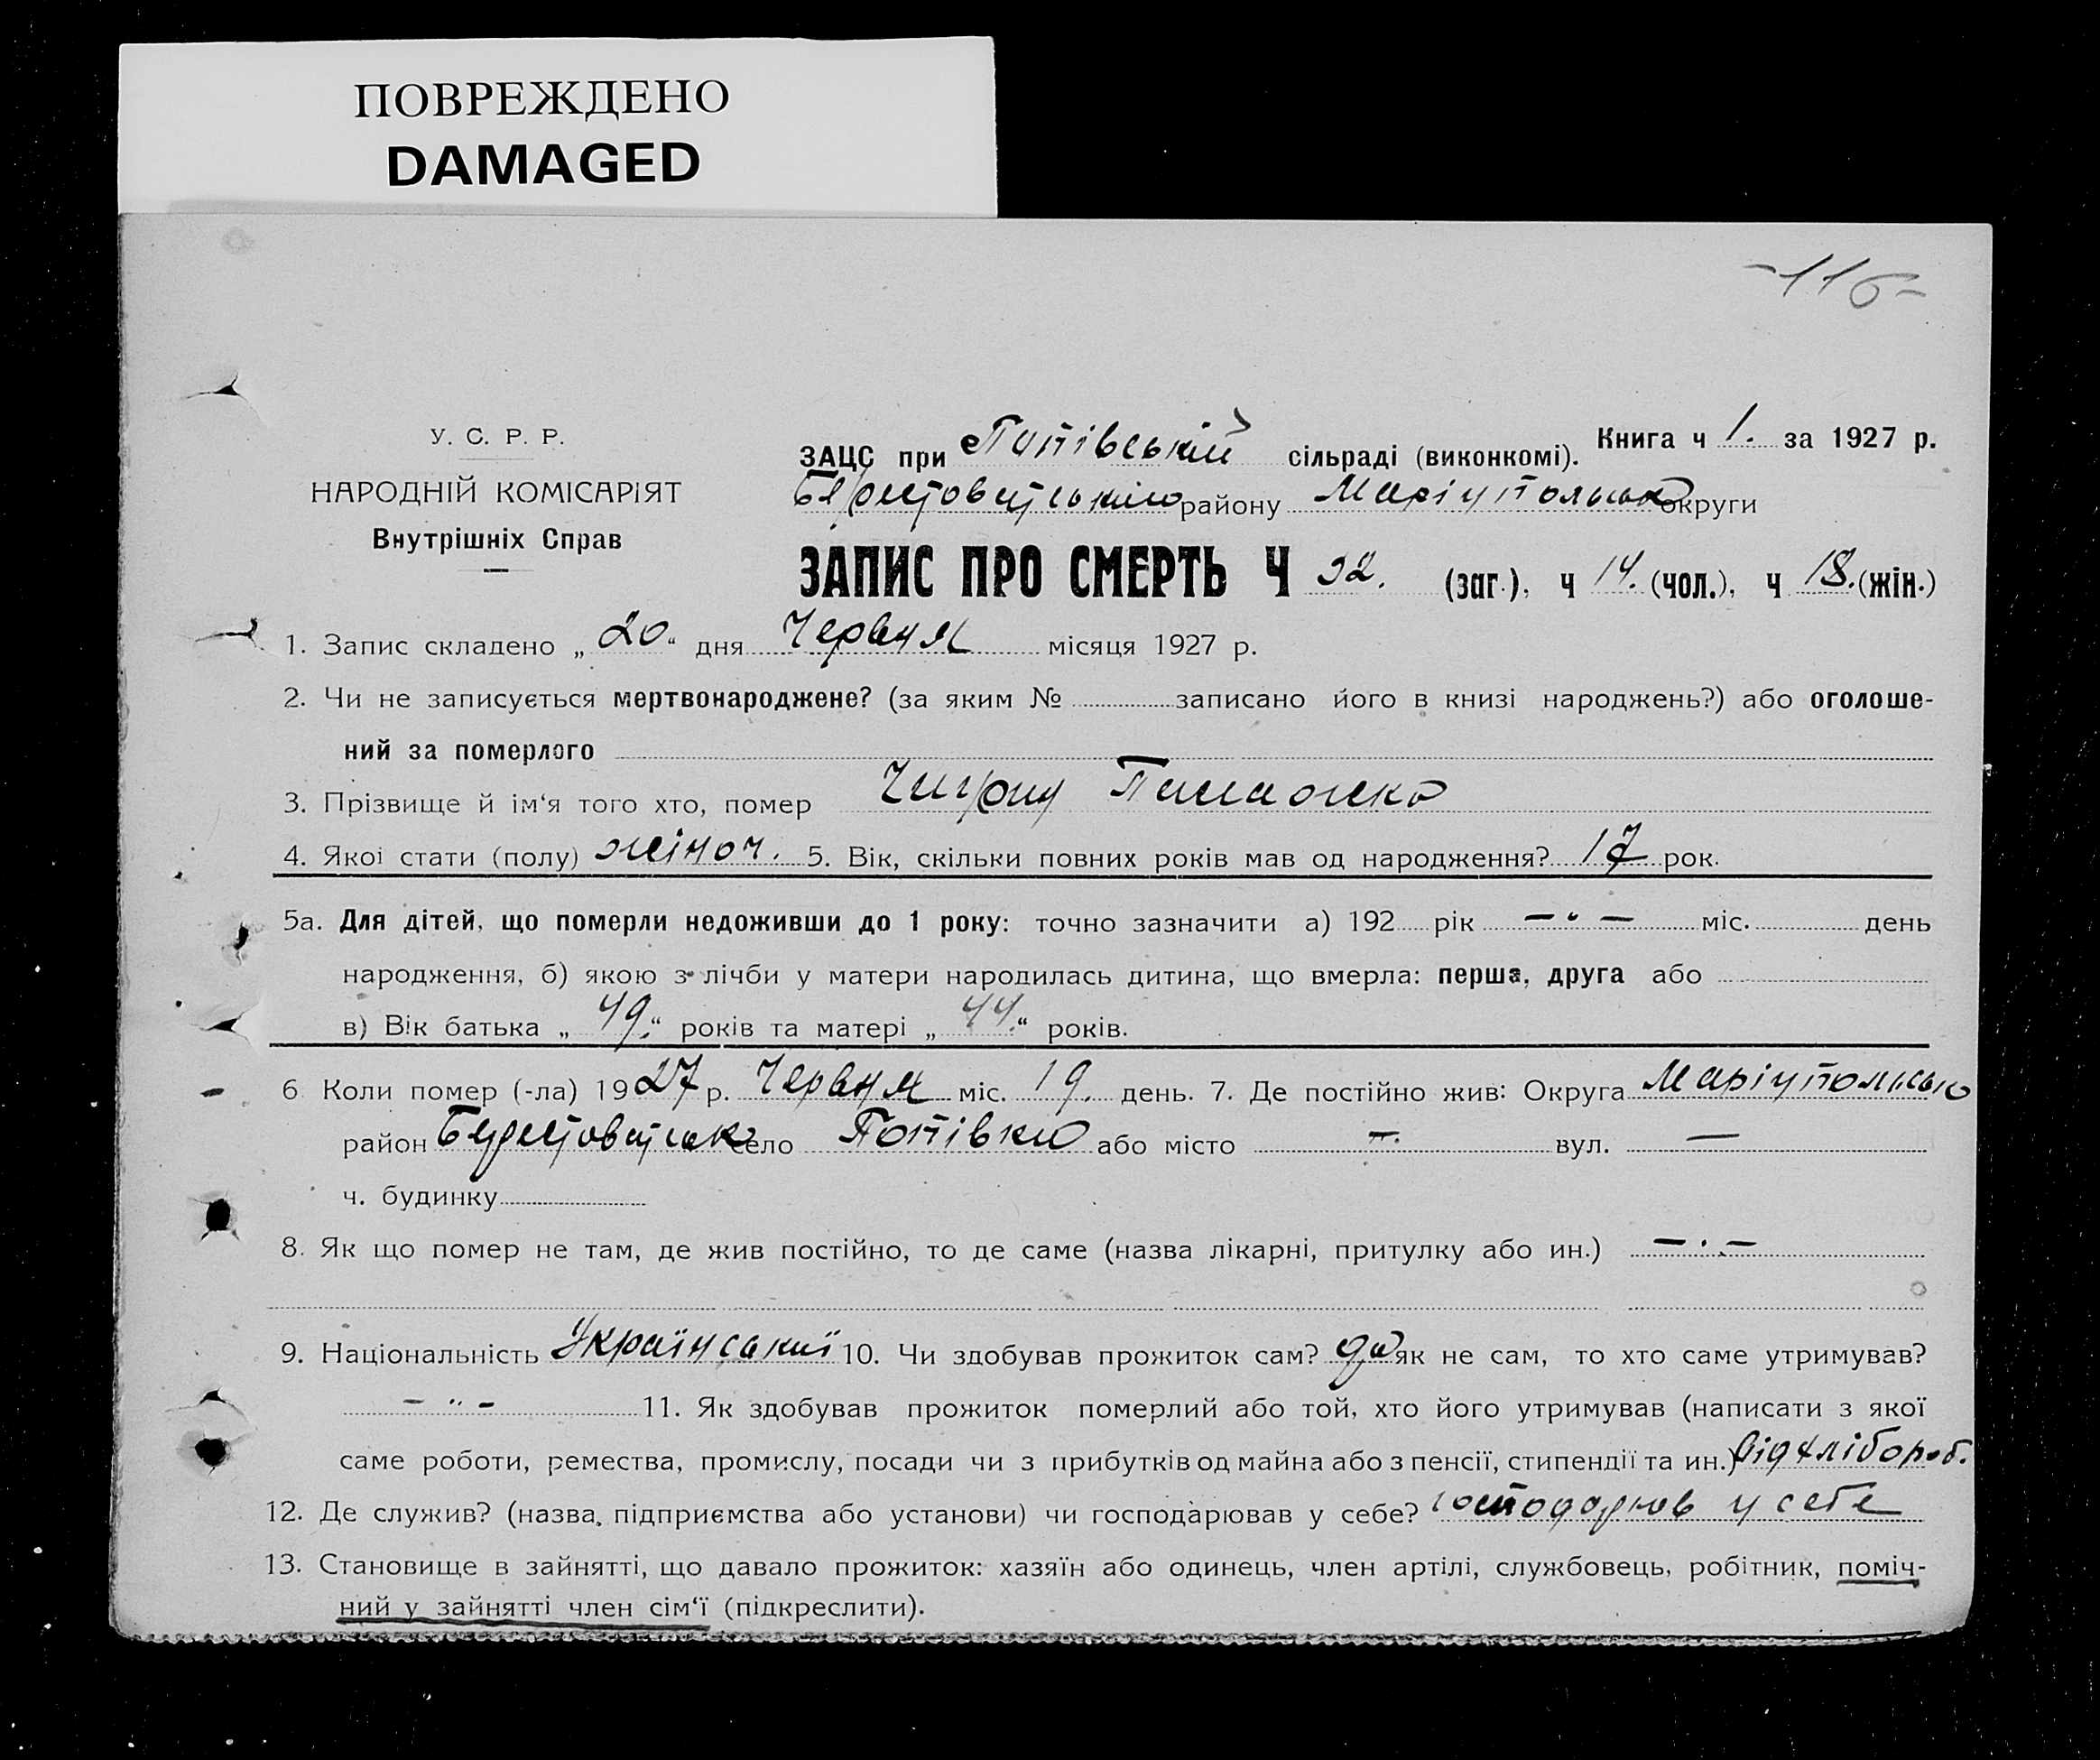 ПОВРЕЖДЕНО
DAMAGED
-116-
У. С. Р. Р.
НАРОДНІЙ КОМІСАРІЯТ
Внутрішніх Справ
Книга ч 1. за 1927 р.
ЗАЦС при Попівській сільраді (виконкомі).
району Маріупольсько округи
ЗАПИС ПРО СМЕРТЬ Ч 32. (заг.), ч 14. (чол.), ч 18. (жін.)
1. Запис складено „ 20 “ дня Червня місяця 1927 р.
2. Чи не записується мертвонароджене? (за яким № записано його в книзі народжень?) або оголоше-
ний за померлого
3. Прізвище й ім‘я того хто, помер Чигрин
4. Якоі стати (полу) жіноч. 5. Вік, скільки повних років мав од народження? 17 рок.
5а. Для дітей, що померли недоживши до 1 року: точно зазначити а) 192 рік — „ — міс. день
народження, б) якою з лічби у матери народилась дитина, що вмерла: перша, друга або
в) Вік батька „ 49. “ років та матері „ 44. “ років.
6 Коли помер (-ла) 1927 р. Червня міс. 19. день. 7. Де постійно жив: Округа Маріупольсько
район село Попівко або місто —. вул. —
ч. будинку
8. Як що помер не там, де жив постійно, то де саме (назва лікарні, притулку або ин.) — . —
9. Національність Український 10. Чи здобував прожиток сам? да як не сам, то хто саме утримував?
— „ — 11. Як здобував прожиток померлий або той, хто його утримував (написати з якої
саме роботи, ремества, промислу, посади чи з прибутків од майна або з пенсії, стипендії та ин.) від хлібороб.
12. Де служив? (назва, підприємства або установи) чи господарював у себе? господарюв у себе
13. Становище в зайнятті, що давало прожиток: хазяїн або одинець, член артілі, службовець, робітник, поміч-
ний у зайнятті член сім‘ї (підкреслити).